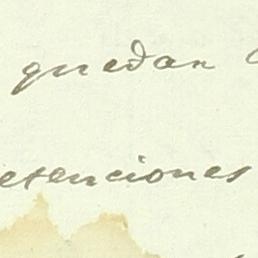 quedan
etenciones